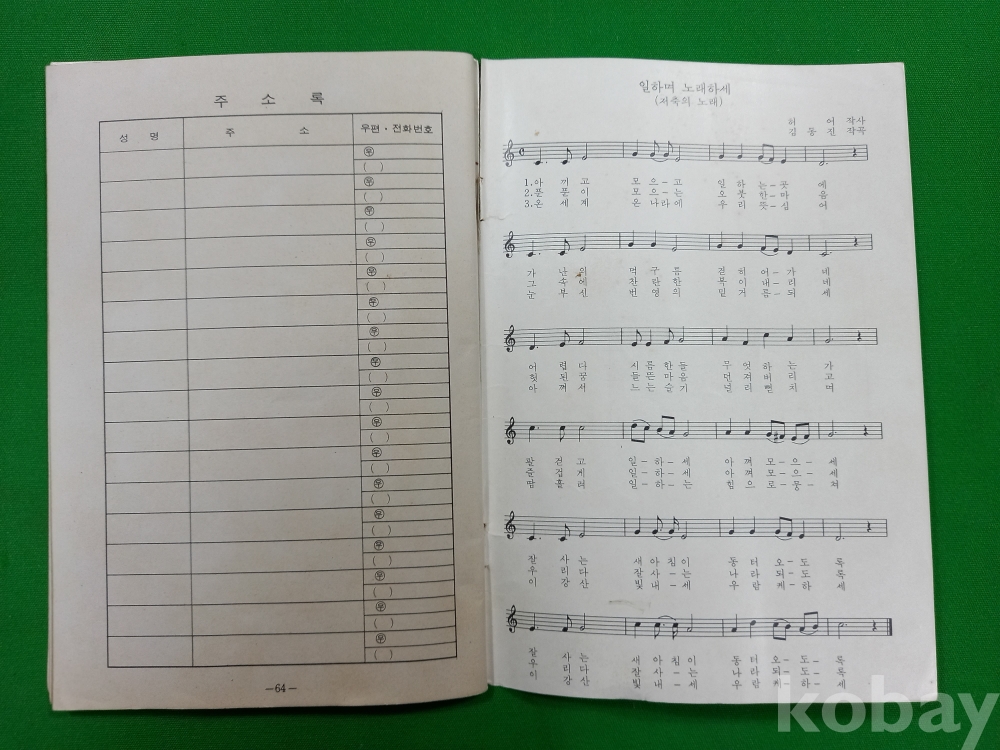 주 소 록
성 명 주 소 우편·전화번호
㉾
( )
㉾
( )
㉾
( )
㉾
( )
㉾
( )
㉾
( )
㉾
( )
㉾
( )
㉾
( )
㉾
( )
㉾
( )
㉾
( )
㉾
( )
㉾
( )
㉾
( )
㉾
( )
㉾
( )
-64-
일하며 노래하세
(저축의 노래)
허 어 작사
김 동 진 작곡
1.아 끼 고 모 으- 고 일 하 는- 곳 에
2.푼 푼 이 모 으- 는 오 붓 한- 마 음
3.온 세 계 온 나라에 우 리 뜻- 심 어
가 난 의 먹 구 름 걷 히 어- 가 네
그 속 에 찬 란 한 복 이 내- 리 네
눈 부 신 번 영 의 일 거 름- 되 세
어 렵 다 시 름 한들 무 엇 하 는 가
헛 된 꿈 들 뜬 마 음 던 져 버 리 고
아 껴 서 느 는 슬 기 널 리 뻗 치 며
팔 걷 고 일- 하- 세 아 껴 모- 으- 세
즐 겁 게 일- 하- 세 아 껴 모- 으- 세
땀 흘 려 일- 하- 는 힘 으 로- 뭉- 쳐
잘 사 는 새 아 침 이 동 터 오- 도 록
우 리 다 잘 사- 는 나 라 되- 도 록
이 강 산 빛 내- 세 우 람 케- 하 세
잘 사 는 새 아 침 이 동 터 오- 도- 록
우 리 다 잘 사- 는 나 라 되- 도- 록
이 강 산 빛 내- 세 우 람 케- 하- 세
kobay